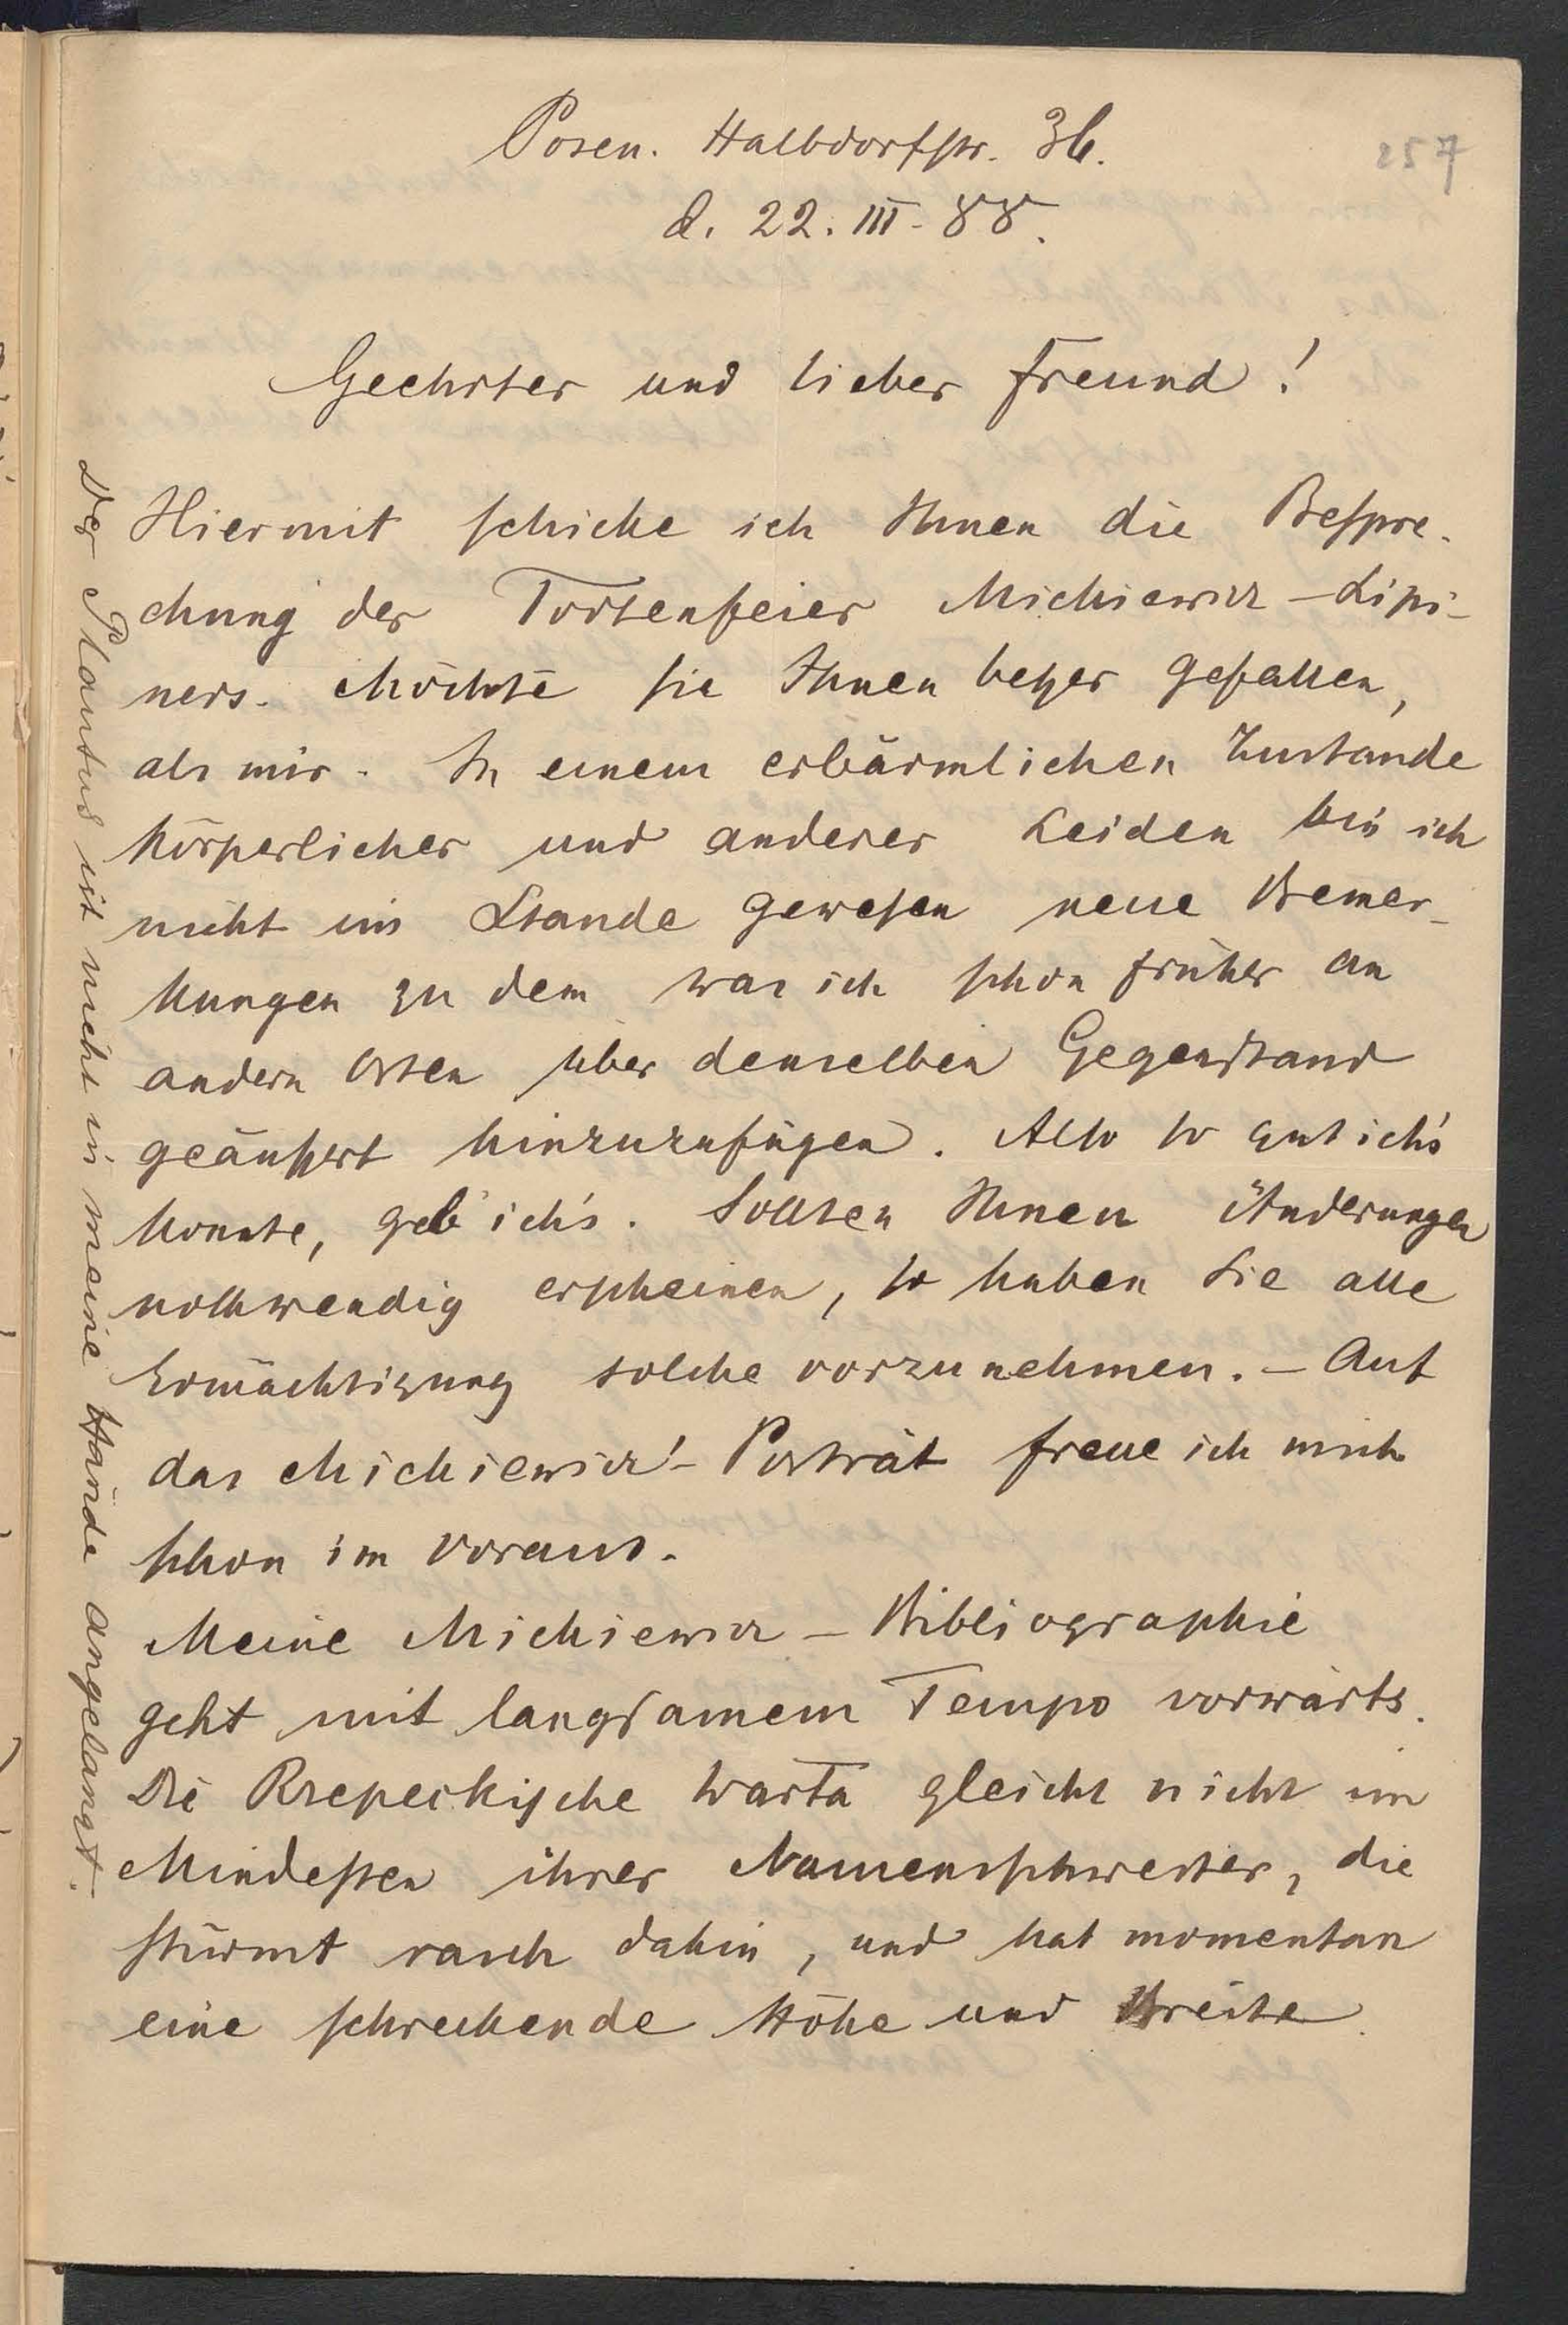 Posen. Halbdorfstr. 36.
257
d. 22. III. 88.
Geehrter und lieber Freund!
Hiermit schicke ich Ihnen die Bespre-
chung der Todtenfeier Mickiewicz-Lipi-
ners. Möchte sie Ihnen besser gefallen,
als mir. In einem erbärmlichen Zustande
körperlicher und anderer Leiden bin ich
nicht im Stande gewesen neue Bemer-
kungen zu dem was ich schon früher an
andern Orten über denselben Gegenstand
geäussert hinzuzufügen. Also so gut ich's
konnte, geb ich's. Sollten Ihnen Änderungen
nothwendig erscheinen, so haben Sie alle
Ermächtigung solche vorzunehmen. - Auf
das Mickiewicz'-Porträt freue ich mich
schon im voraus.
Meine Mickiewicz-Bibliographie
geht mit langsamem Tempo vorwärts.
Die Rzepeckische Warta gleicht nicht im
Mindesten ihrer Namensschwester, die
stürmt rasch dahin, und hat momentan
eine schreckende Höhe und Breite.
Der Plautus ist nicht in meine Hände angelangt.